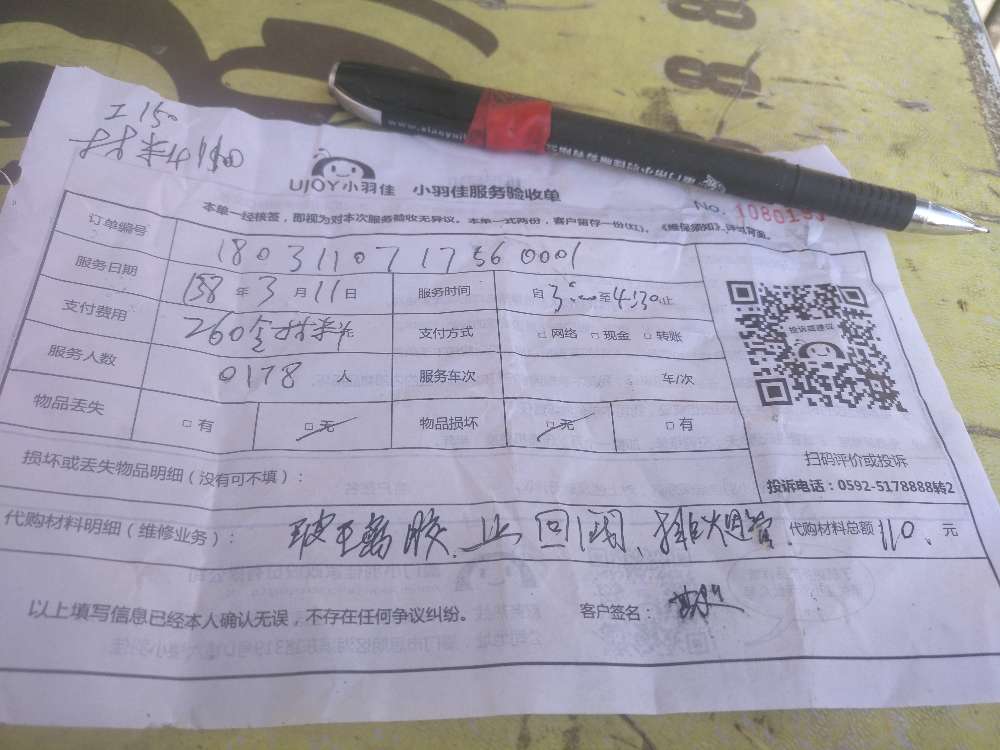 工150
材料110
UJOY小羽佳 小羽佳服务验收单
No. 10801
本单一经核签,即视为对本次服务验收无异议。本单一式两份,客户留存一份(红)。《维保须知》详见背面。
订单编号 1803110717560001
服务日期 年3月11日 服务时间 自3:00至4:30止
支付费用 260含材料元 支付方式 □网络 □现金 □转账
服务人数 0178人 服务车次 车/次
物品丢失 □有 □无 物品损坏 □无 □有
投诉或建议
扫码评价或投诉
投诉电话:0592-5178888转2
损坏或丢失物品明细(没有可不填):
代购材料明细(维修业务): 玻璃胶.止回阀、排烟管. 代购材料总额110.元
以上填写信息已经本人确认无误,不存在任何争议纠纷。 客户签名: